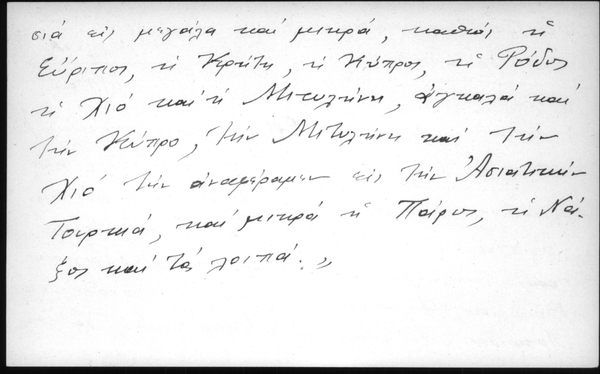 σιά εἰς μεγάλα καί μικρά, καθώς ἡ
Εὔριπος, ἡ Κρήτη, ἡ Κύπρος, ἡ Ρόδος
ἡ Χιό καί ἡ Μιτυλήνη, ἀγκαλά καί
τήν Κύπρο, τήν Μιτυλήνη καί τήν
Χιό τήν ἀναφέραμεν εἰς τήν Ἀσιατικήν
Τουρκιά, καί μικρά ἡ Πάρος, ἡ Νά-
ξος καί τά λοιπά.»